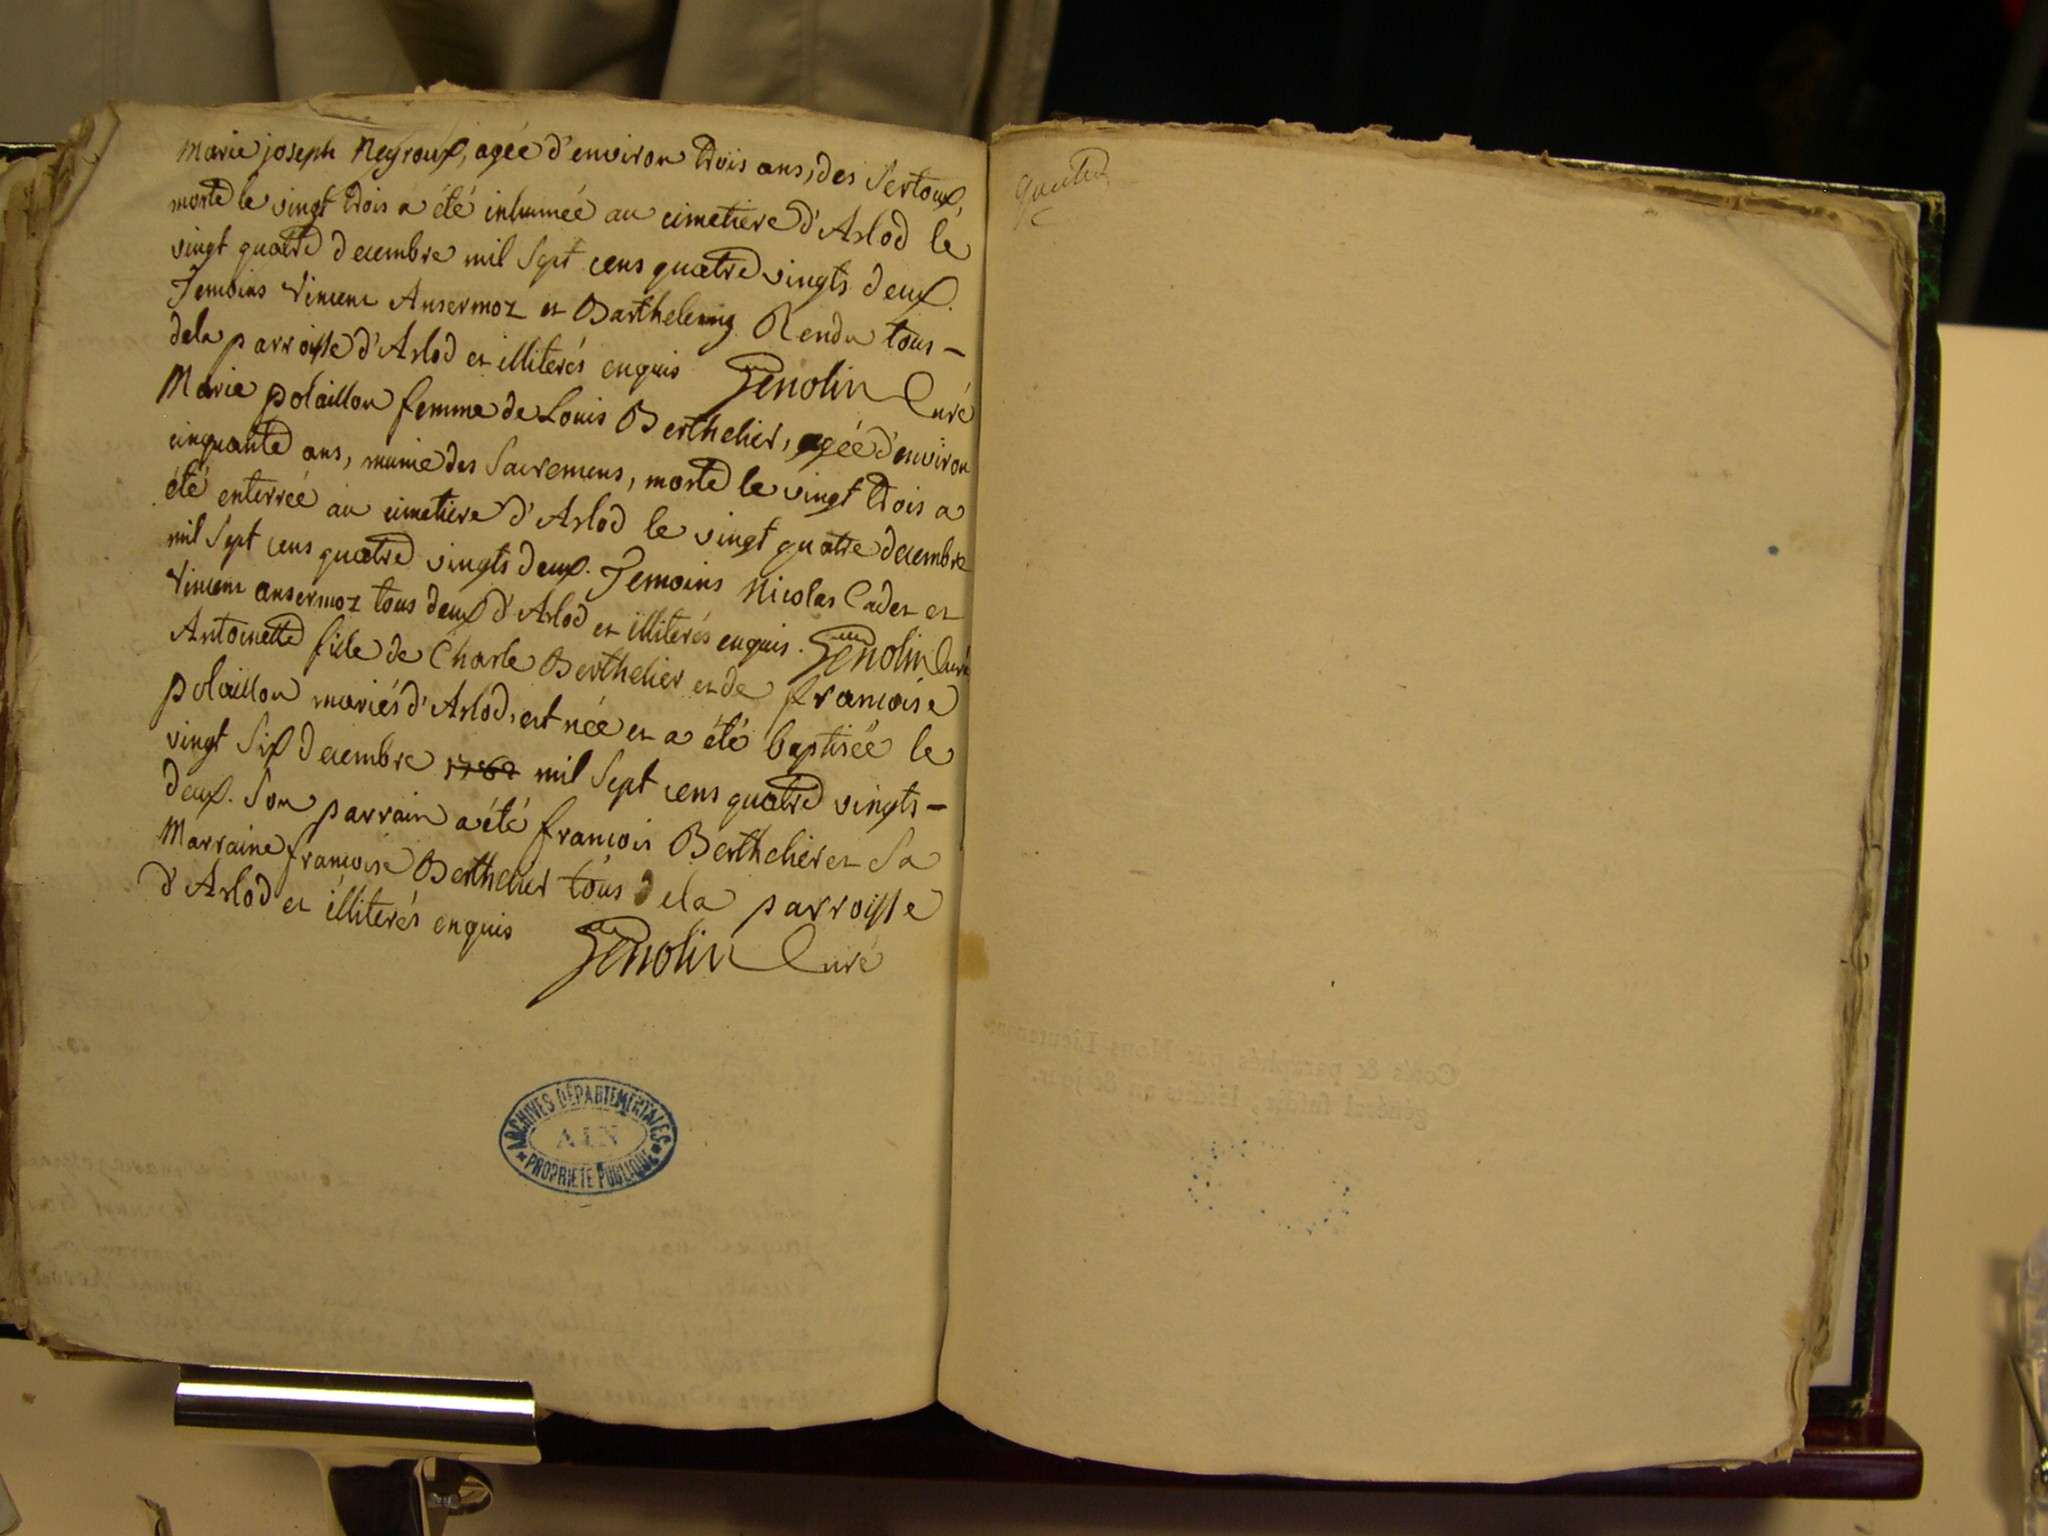 Marie joseph Neyroux, agée d'environ trois ans, des Sertoux,
morte le vingt trois a été inhumée au cimetiere d'Arlod le
vingt quatre decembre mil Sept cens quatre vingts deux.
Temoins Vincent Ansermoz et Barthelemy Rendu tous –
dela parroisse d'Arlod et illiterés enquis Genolin Curé
Marie polaillon femme de Louis Berthelier, agée d'environ
cinquante ans, munie des Sacremens, morte le vingt trois a
été enterrée au cimetiere d'Arlod le vingt quatre decembre
mil Sept cens quatre vingts deux. Temoins Nicolas Cadet et
Vincent ansermoz tous deux d'Arlod et illiterés enquis. Genolin Curé
Antoinette fille de Charle Berthelier et de francoise
polaillon mariés d'Arlod, est née et a été baptisée le
vingt Six decembre 1782 mil Sept cens quatre vingts –
deux. Son parrain a été francois Berthelier et Sa
Marraine francoise Berthelier tous dela parroisse
d'Arlod et illiterés enquis
Genolin Curé
ARCHIVES DÉPARTEMENTALES
AIN
PROPRIETE PUBLIQUE